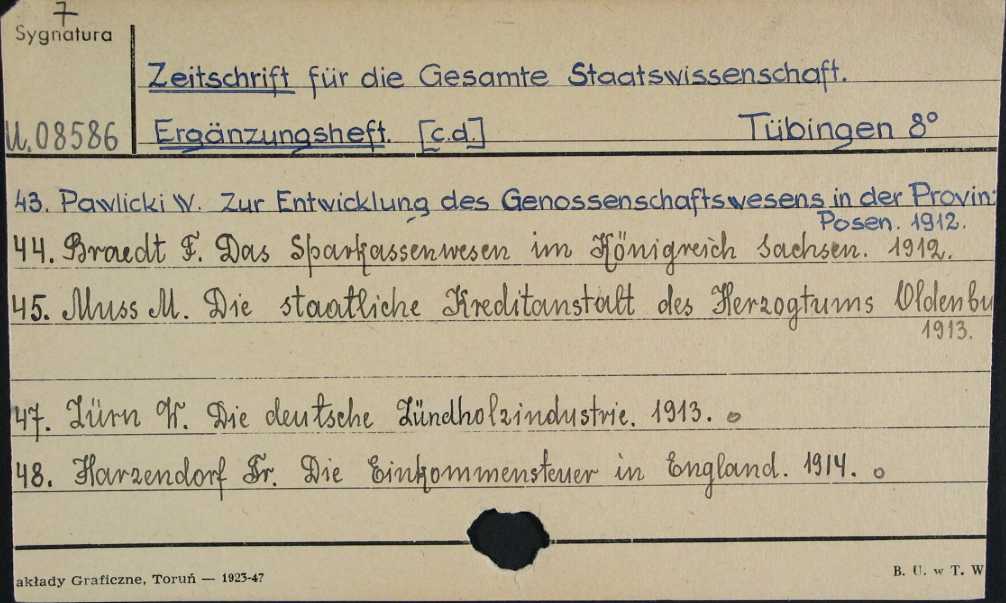 7
Sygnatura
U.08586
Zeitschrift für die Gesamte Staatswissenschaft.
Ergänzungsheft. [c.d.] Tübingen 8°
43. Pawlicki W. Zur Entwicklung des Genossenschaftswesens in der Provinz
Posen. 1912.
44. Braedt F. Das Sparkassenwesen im Königreich Sachsen. 1912.
45. Muss M. Die staatliche Kreditanstalt des Herzogtums Oldenbu
1913.
47. Zürn W. Die deutsche Zündholzindustrie. 1913. o
48. Harzendorf Fr. Die Einkommensteuer in England. 1914. o
akłady Graficzne, Toruń — 1923-47
B. U. w T. W